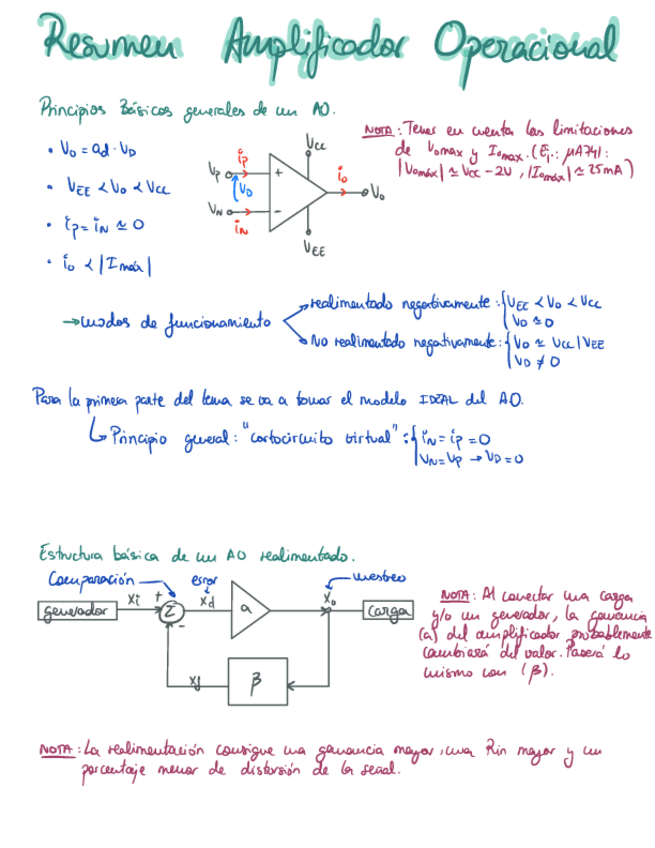 Resumen Amplificador Operacional
Principios Básicos generales de un AO.
• Vo = ad · VD
• VEE < Vo < Vcc
• ip = iN ≃ 0
• io < |Imáx|
Vcc
VP
ip
+
VD
io
Vo
VN
-
iN
VEE
NOTA: Tener en cuenta las limitaciones
de Vomax y Iomax. (Ej.: μA741:
|Vomáx| ≃ Vcc - 2V, |Iomáx| ≃ 25mA)
→ modos de funcionamiento
realimentado negativamente: { VEE < Vo < Vcc
VD ≃ 0
No realimentado negativamente: { Vo ≃ Vcc | VEE
VD ≠ 0
Para la primera parte del tema se va a tomar el modelo IDEAL del AO.
↳ Principio general: "cortocircuito virtual": { iN = ip = 0
VN = VP → VD = 0
Estructura básica de un AO realimentado.
Comparación
error
muestreo
generador
xi
+
Σ
-
xd
a
xo
carga
xf
β
NOTA: Al conectar una carga
y/o un generador, la ganancia
(a) del amplificador probablemente
cambiará del valor. Pasará lo
mismo con (β).
NOTA: La realimentación consigue una ganancia mayor, una Rin mayor y un
porcentaje menor de distorsión de la señal.